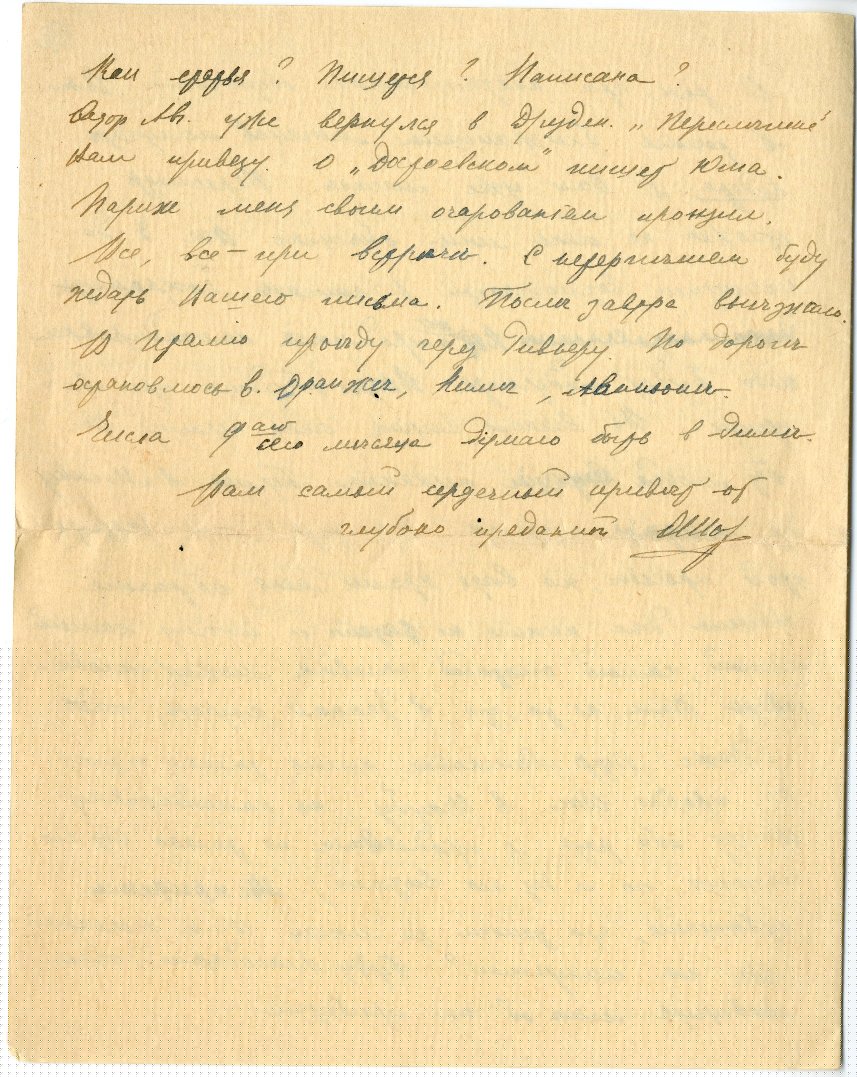 Как статья? Пишется? Написана?
Ѳедор Ав. уже вернулся в Дрезден. „Переслегина"
Вам привезу. О „Достоевском" пишет
Париж меня своим очарованіем пронзил.
Все, все – при встрѣчѣ. С нетерпѣніем буду
ждать Вашего письма. Послѣ завтра выѣзжаю.
В Италію проѣду через Ривьеру. По дорогѣ
остановлюсь в Оранжѣ, Нимѣ, Авиньонѣ.
Числа 9аго сего мѣсяца думаю быть в Римѣ.
Вам самый сердечный привѣт от
глубоко преданной